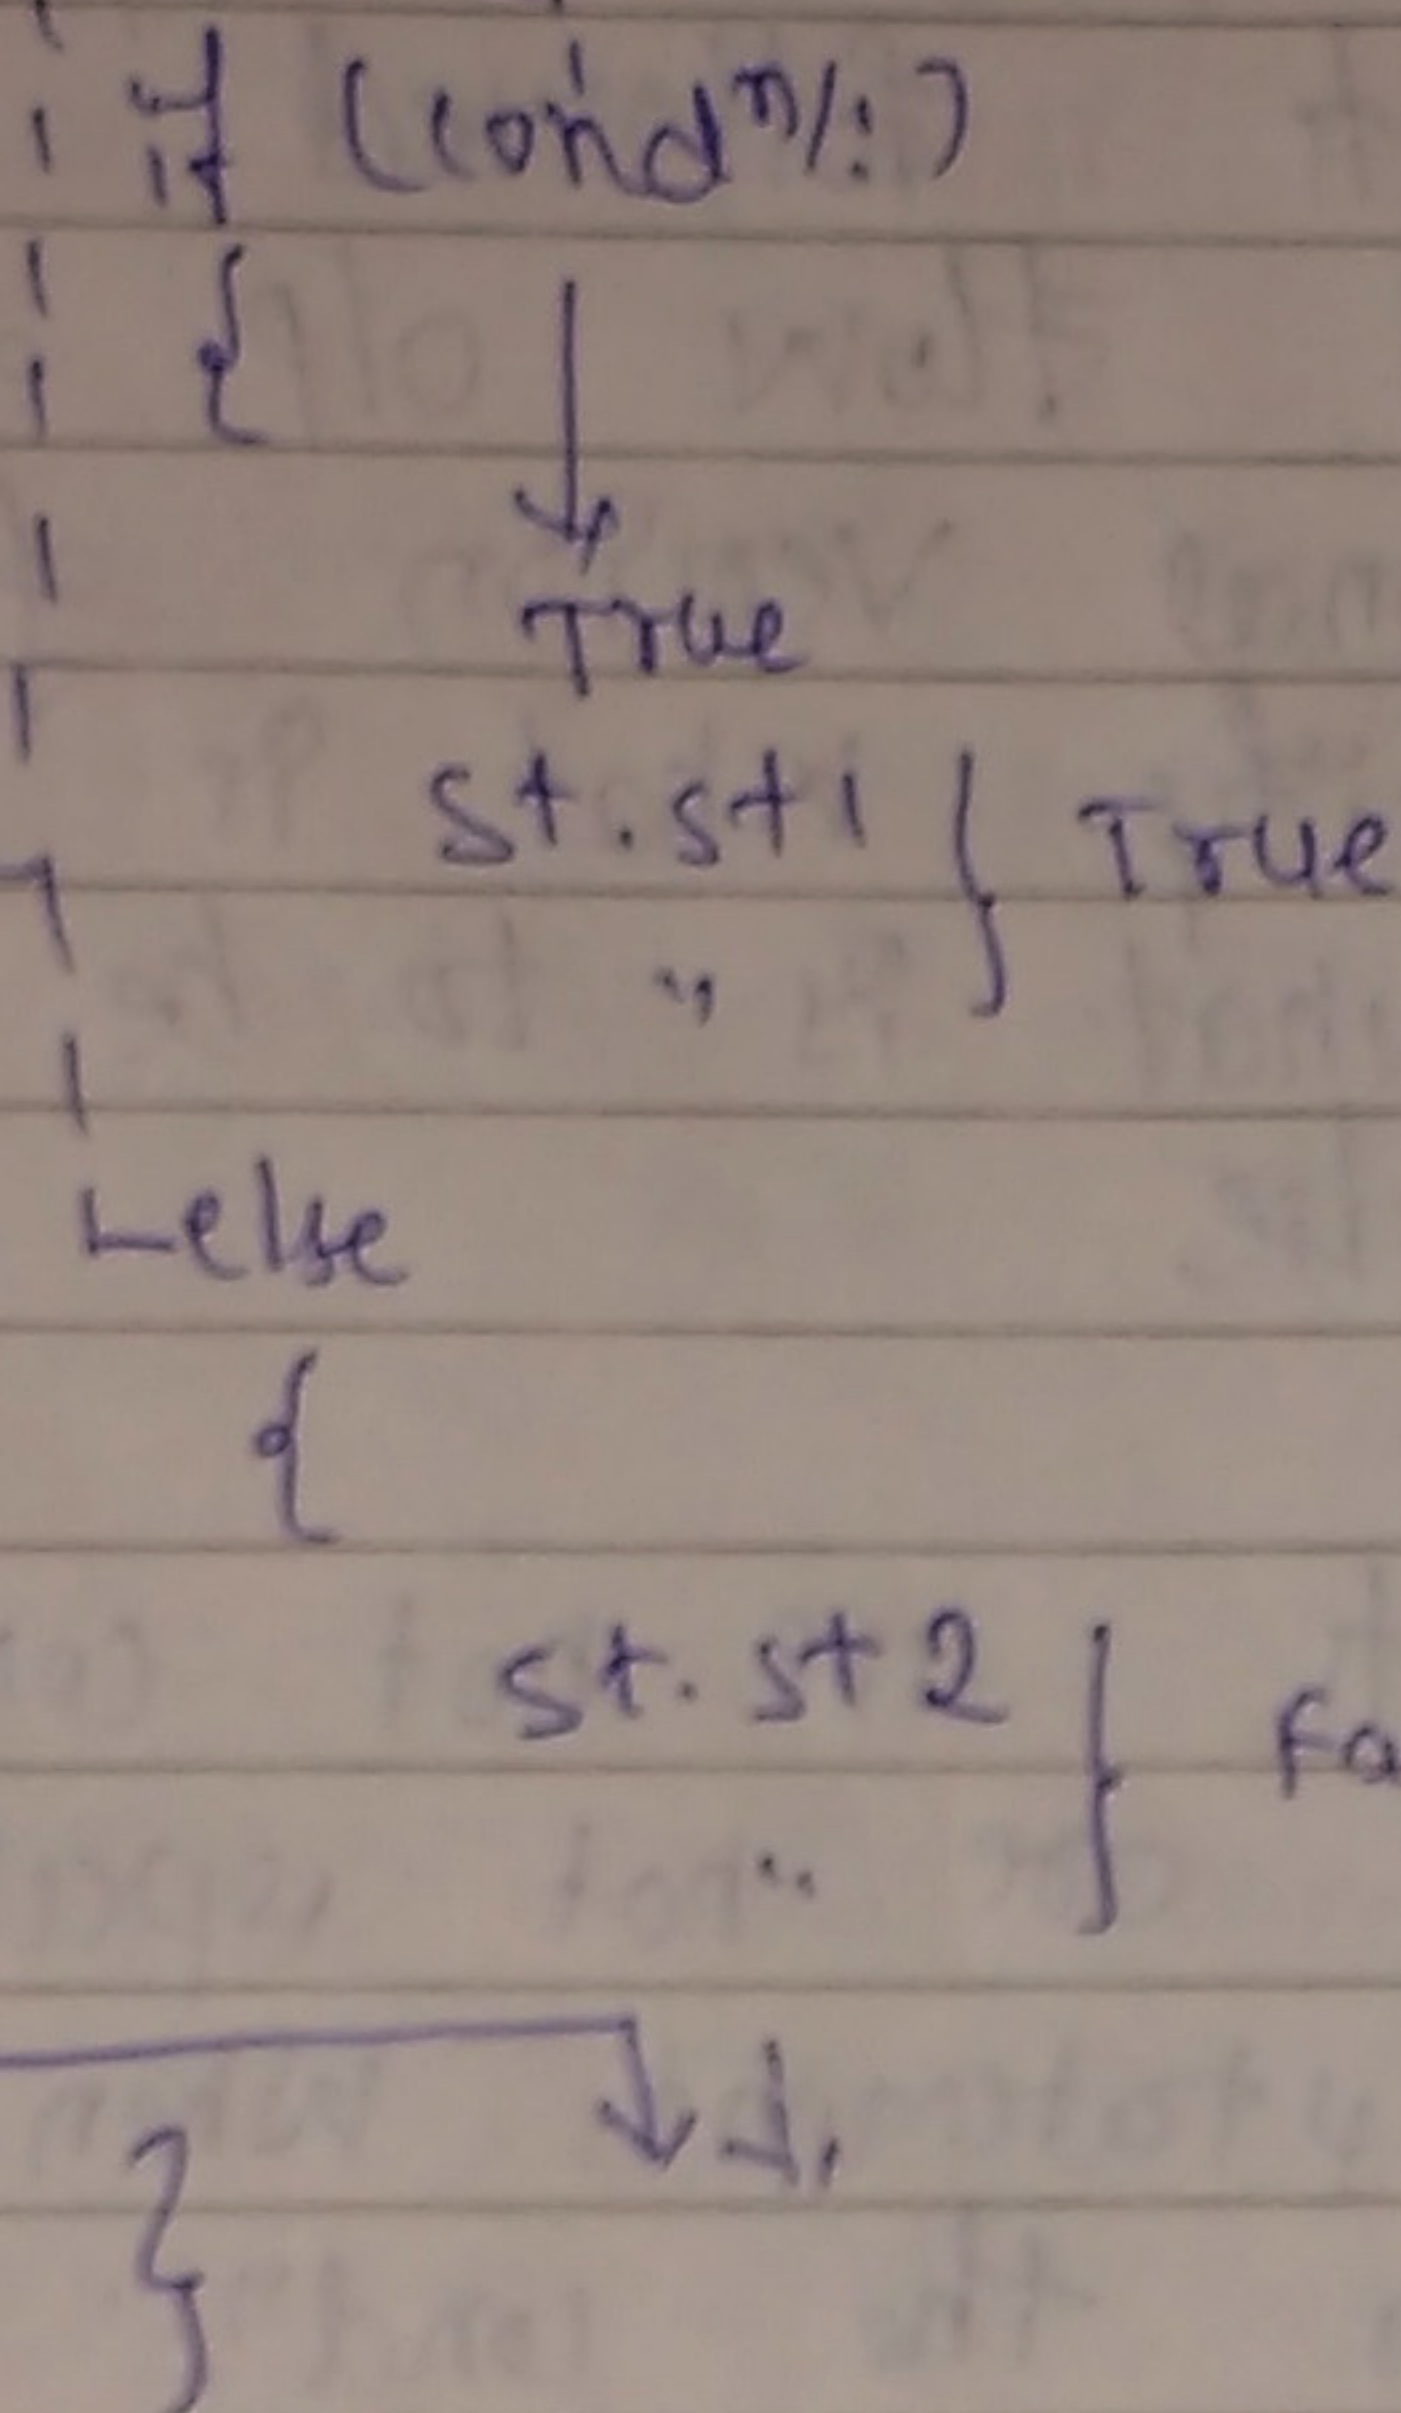 if (condⁿ/:)
{
True
st. st 1 } True
"
else
{
st. st 2 }
"
}